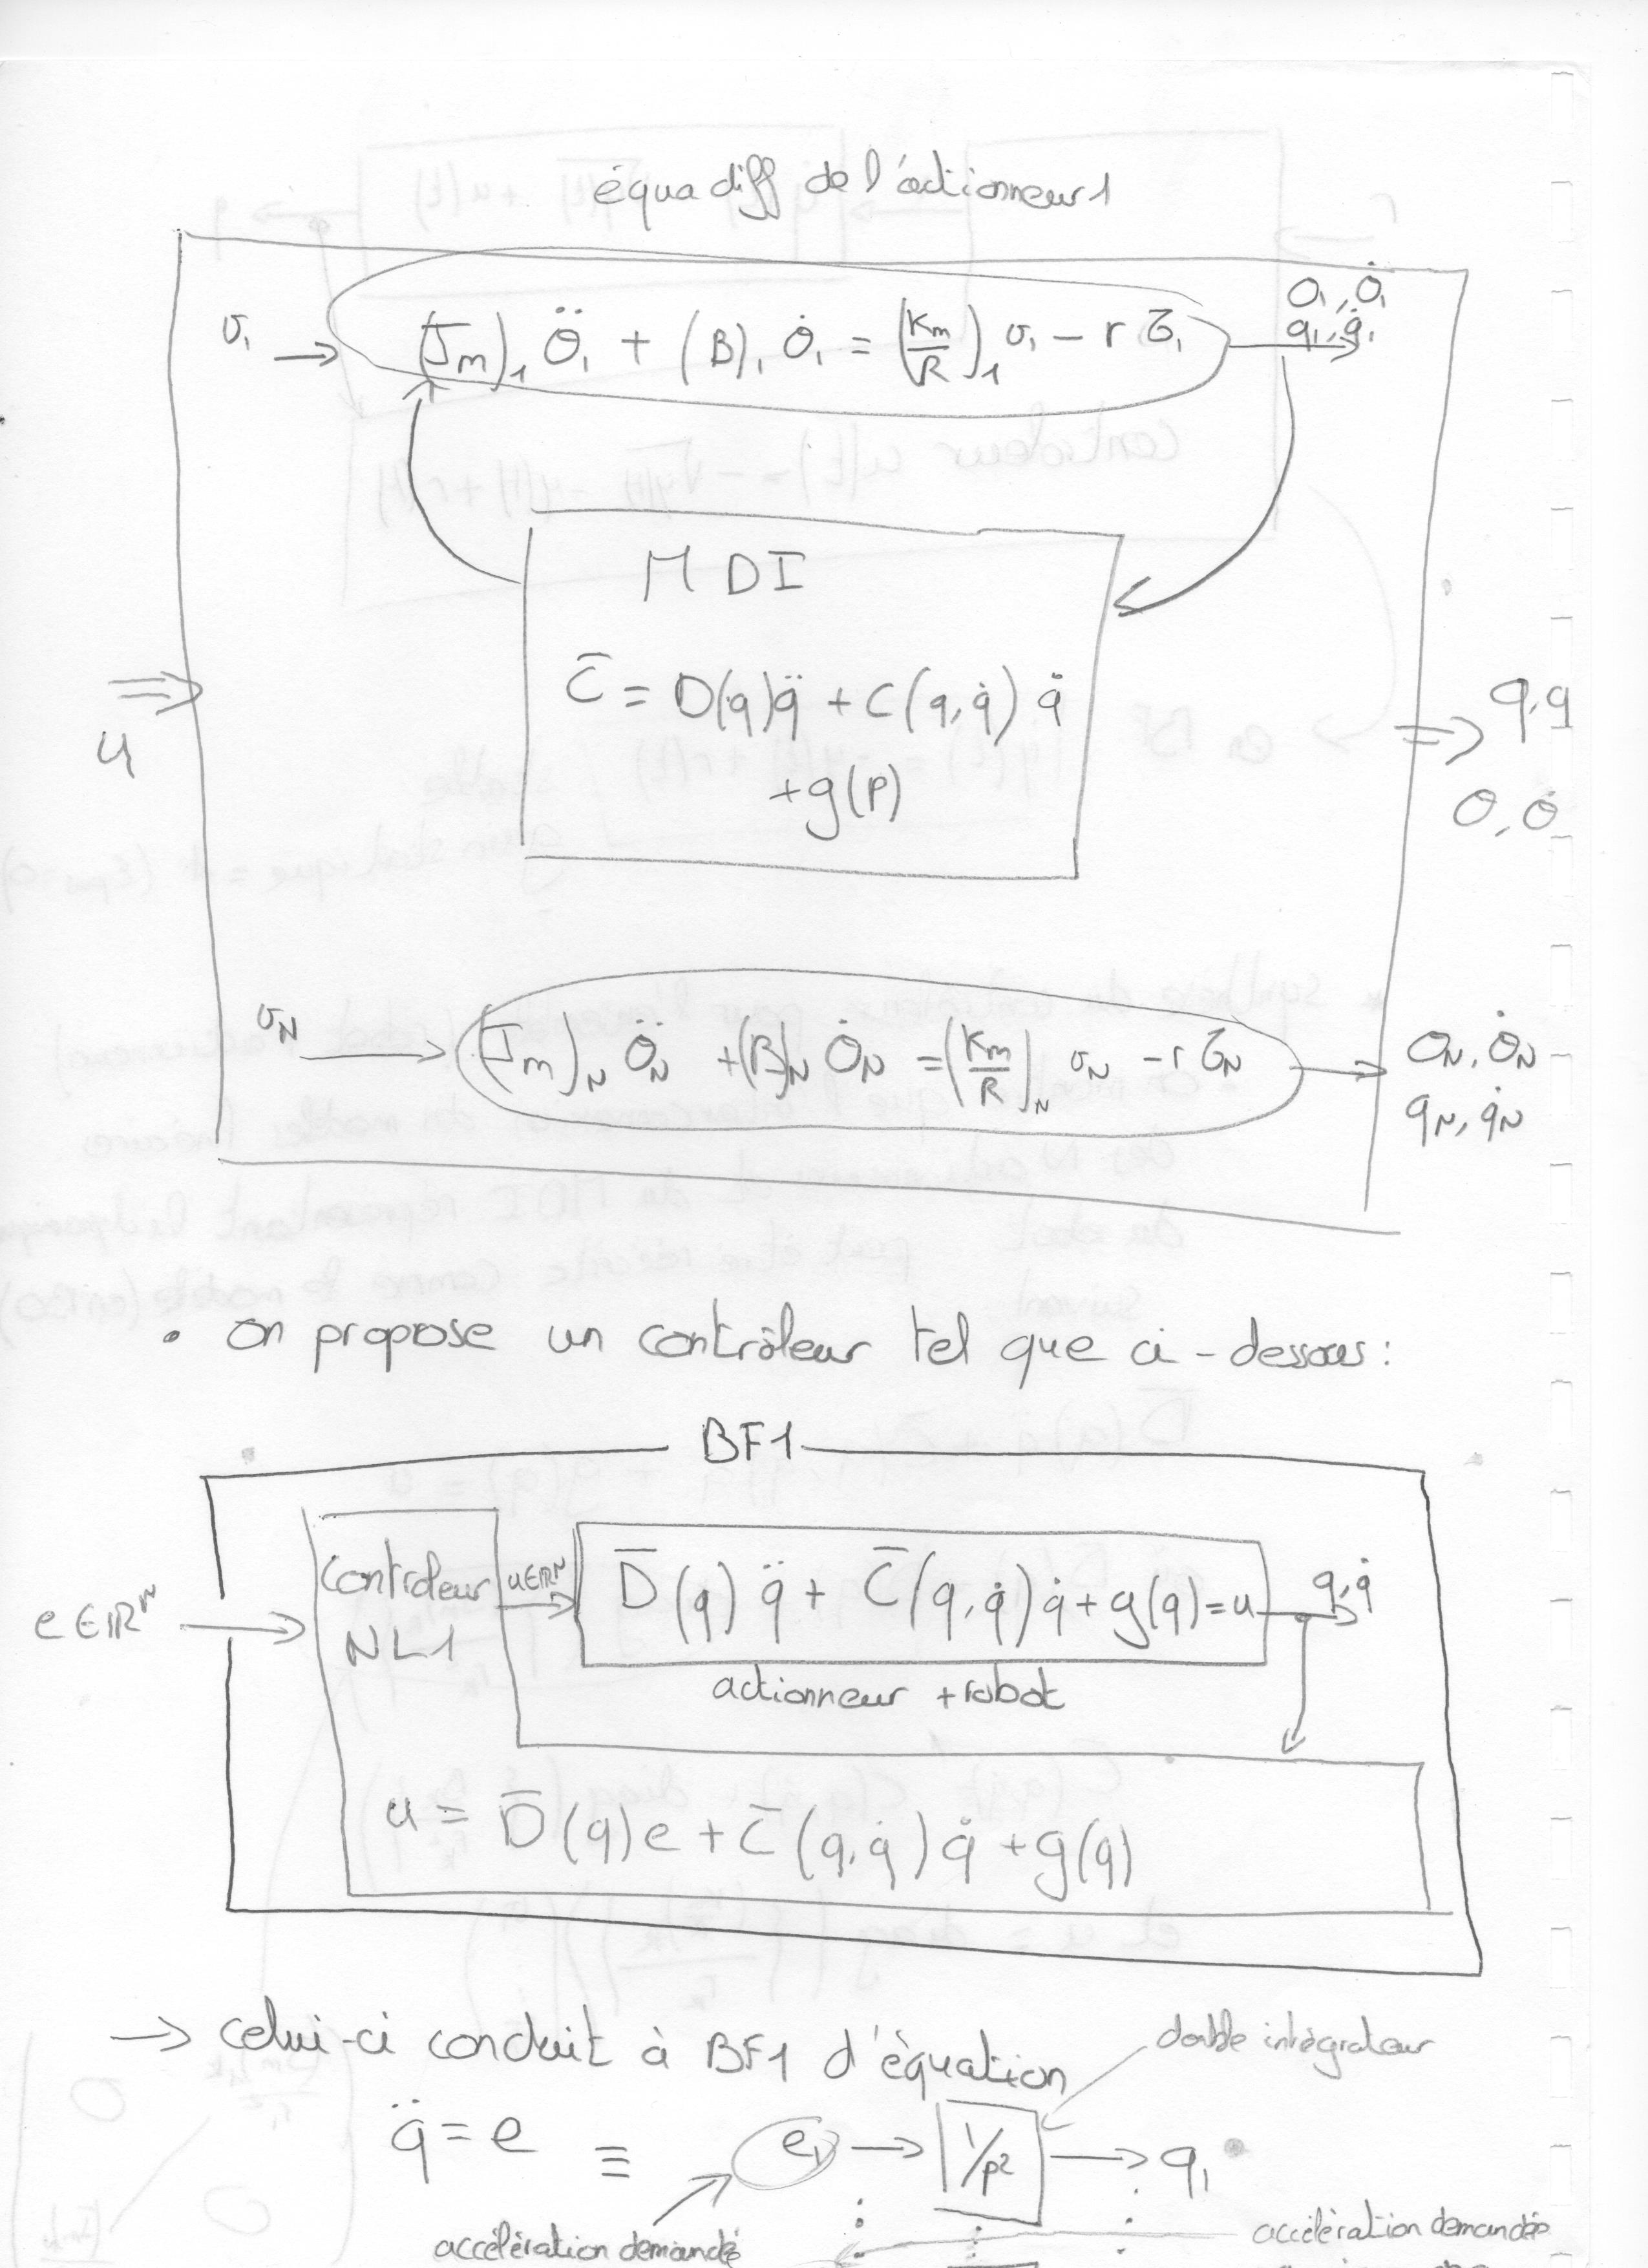 équa diff de l'actionneur 1
v₁ → (Jm)₁ Ö₁ + (B)₁ Ȯ₁ = (Km/R)₁ v₁ - r τ₁
O₁, Ȯ₁
q₁, q̇₁
MDI
τ̄ = D(q)q̈ + C(q, q̇) q̇
+ g(p)
u ⇒
⇒ q, q
O, Ȯ
vN → (Jm)N ÖN + (B)N ȮN = (Km/R)N vN - r τN
ON, ȮN
qN, q̇N
• on propose un contrôleur tel que ci-dessous :
BF1
e ∈ ℝⁿ →
controleur
NL1
u∈ℝᴺ
D̄(q) q̈ + C̄(q, q̇) q̇ + g(q) = u
q, q̇
actionneur + robot
u = D̄(q) e + C̄(q, q̇) q̇ + g(q)
→ celui-ci conduit à BF1 d'équation
double intégrateur
q̈ = e ≡ e₁ → 1/p² → q₁
accélération demandé
accélération demandée